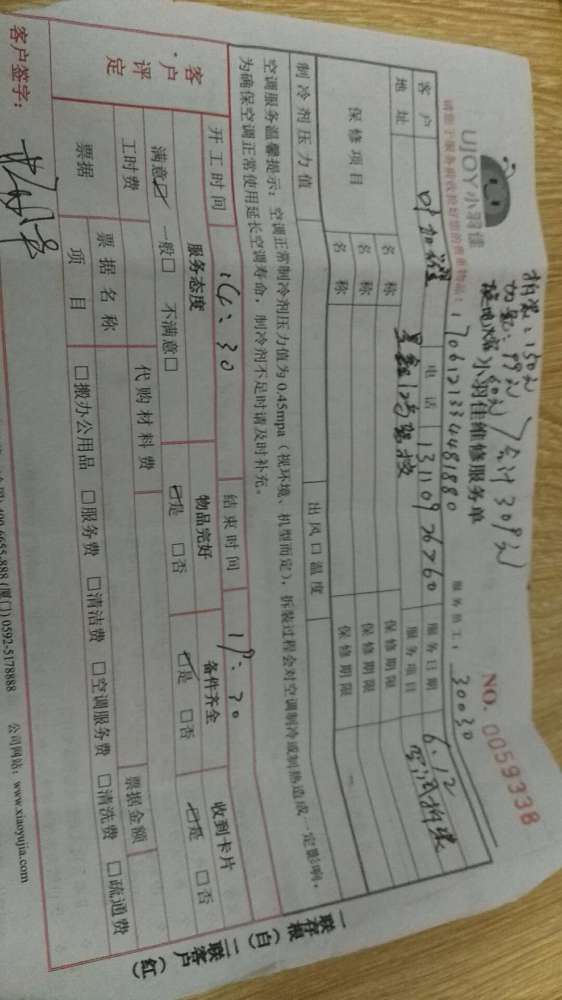 拆装：150元
UJOY小羽佳
小羽佳维修服务单
合计309元
NO. 0059338
请您于服务前收捡好您的贵重物品！
17061213344481880
服务员工：30030
客户
电话
13110926760
服务日期
6.12
地址
星鑫12号驾校
服务项目
空调拆装
保修项目
名称
保修期限
名称
保修期限
名称
保修期限
制冷剂压力值
出风口温度
空调服务温馨提示：空调正常制冷剂压力值为0.45mpa（视环境、机型而定），拆装过程会对空调制冷或制热造成一定影响，
为确保空调正常使用延长空调寿命，制冷剂不足时请及时补充。
开工时间
14：30
结束时间
19：30
客户评定
服务态度
物品完好
备件齐全
收到卡片
满意☑ 一般□ 不满意□
☑是 □否
☑是 □否
☑是 □否
工时费
代购材料费
票据金额
票据
票据名称
项目
□搬办公用品 □服务费 □清洁费 □空调服务费 □清洗费 □疏通费
客户签字：
400-6655-888 (厦门) 0592-5178888
公司网站：www.xiaoyujia.com
一联存根（白）二联客户（红）